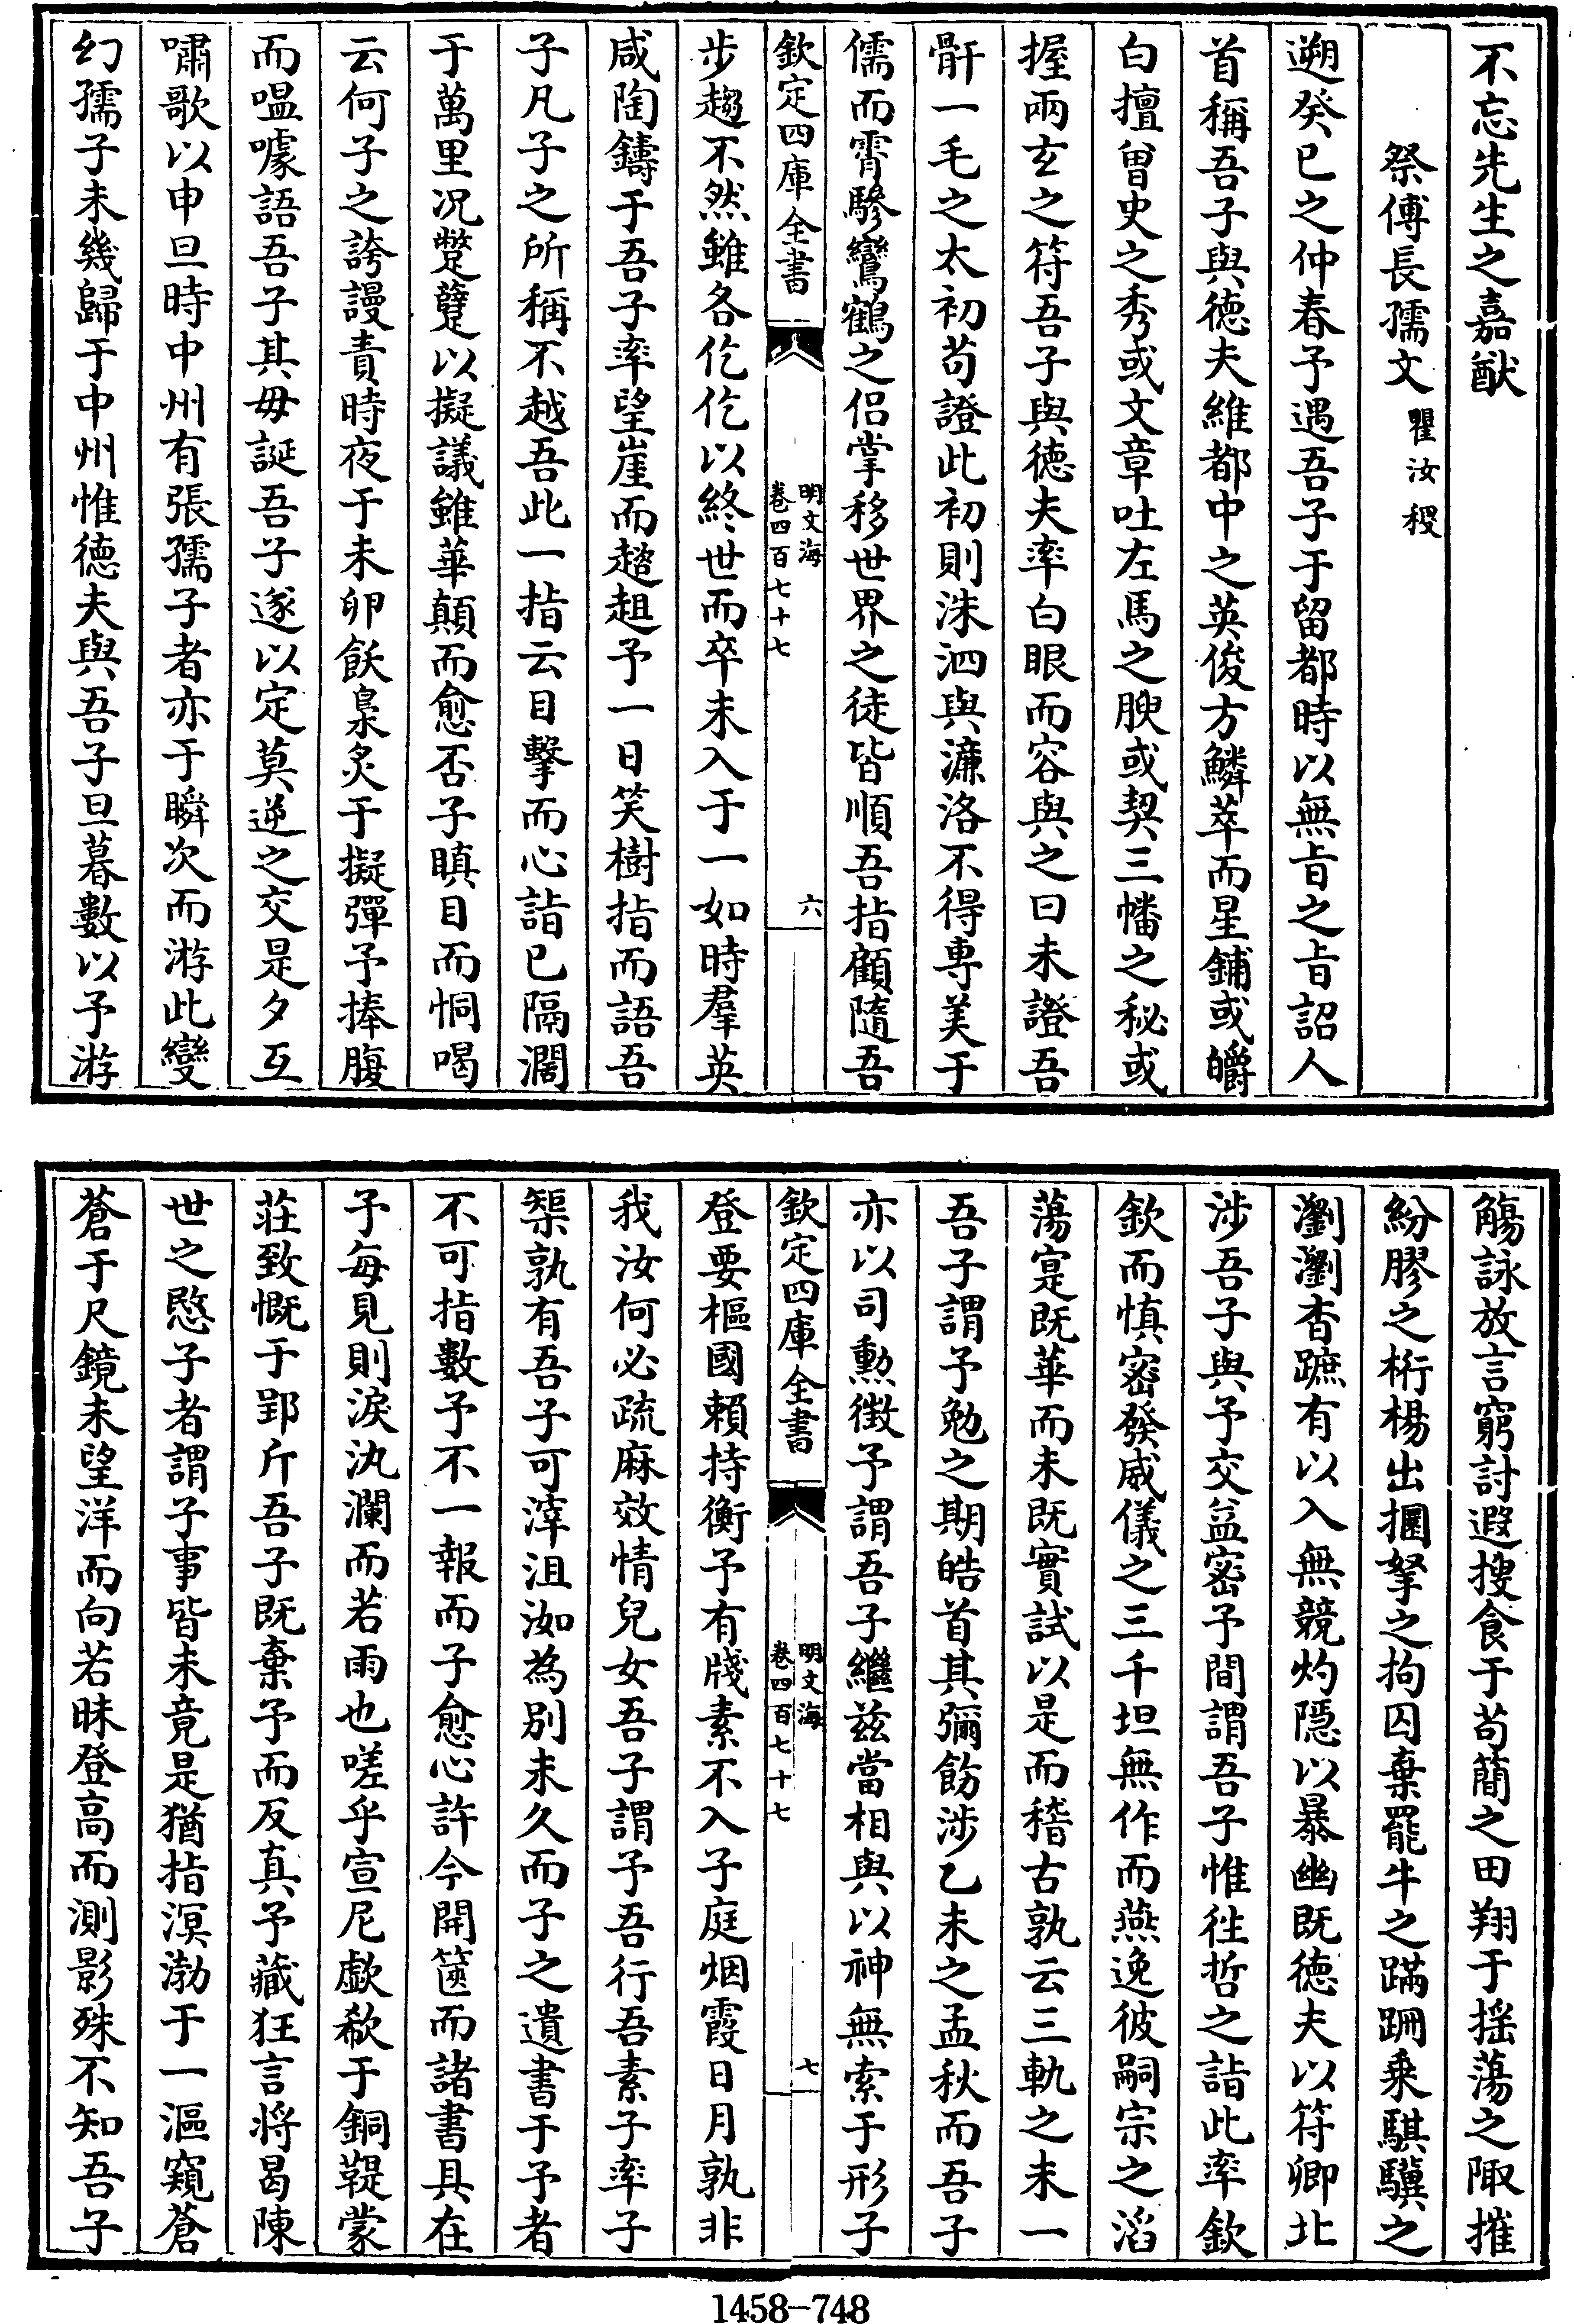 不忘先生之嘉猷
祭傅長孺文 瞿汝稷
遡癸巳之仲春予遇吾子于留都時以無㫖之㫖詔人
首稱吾子與徳夫維都中之英俊方鱗萃而星鋪或皭
白擅曾史之秀或文章吐左馬之腴或契三幡之秘或
握兩玄之符吾子與徳夫率白眼而容與之曰未證吾
骭一毛之太初苟證此初則洙泗與濂洛不得専美于
儒而霄驂鸞鶴之侣掌移世界之徒皆順吾指顧隨吾
欽定四庫全書
明文海
卷四百七十七
六
步趨不然雖各仡仡以終世而卒未入于一如時羣英
咸陶鑄于吾子率望崖而趦趄予一日笑樹指而語吾
子凡子之所稱不越吾此一指云目擊而心詣已隔濶
于萬里况蹩躠以擬議雖華顛而愈否子瞋目而恫喝
云何子之誇謾責時夜于未卵飫梟炙于擬彈予捧腹
而嗢噱語吾子其毋誕吾子遂以定莫逆之交是夕互
嘯歌以申旦時中州有張孺子者亦于瞬次而游此變
幻孺子未幾歸于中州惟徳夫與吾子旦暮數以予游
觴詠放言窮討遐搜食于苟簡之田翔于揺蕩之陬摧
紛膠之桁楊出摑拏之拘囚棄罷牛之蹣跚乗騏驥之
瀏瀏杳蹠有以入無競灼隱以暴幽既徳夫以符卿北
涉吾子與予交益密予間謂吾子惟徃哲之詣此率欽
欽而慎密發威儀之三千坦無作而燕逸彼嗣宗之滔
蕩寔既華而未既實試以是而稽古孰云三軌之未一
吾子謂予勉之期皓首其彌飭涉乙未之孟秋而吾子
亦以司勲徴予謂吾子繼兹當相與以神無索于形子
欽定四庫全書
明文海
卷四百七十七
七
登要樞國賴持衡予有牋素不入子庭烟霞日月孰非
我汝何必疏麻效情兒女吾子謂予吾行吾素子率子
榘孰有吾子可滓沮洳為别未久而子之遺書于予者
不可指數予不一報而子愈心許今開篋而諸書具在
予每見則涙汍瀾而若雨也嗟乎宣尼歔欷于銅鞮蒙
莊致慨于郢斤吾子既棄予而反真予藏狂言将曷陳
世之慜子者謂子事皆未竟是猶指溟渤于一漚窺蒼
蒼于尺鏡未望洋而向若昧登高而測影殊不知吾子
1458—748